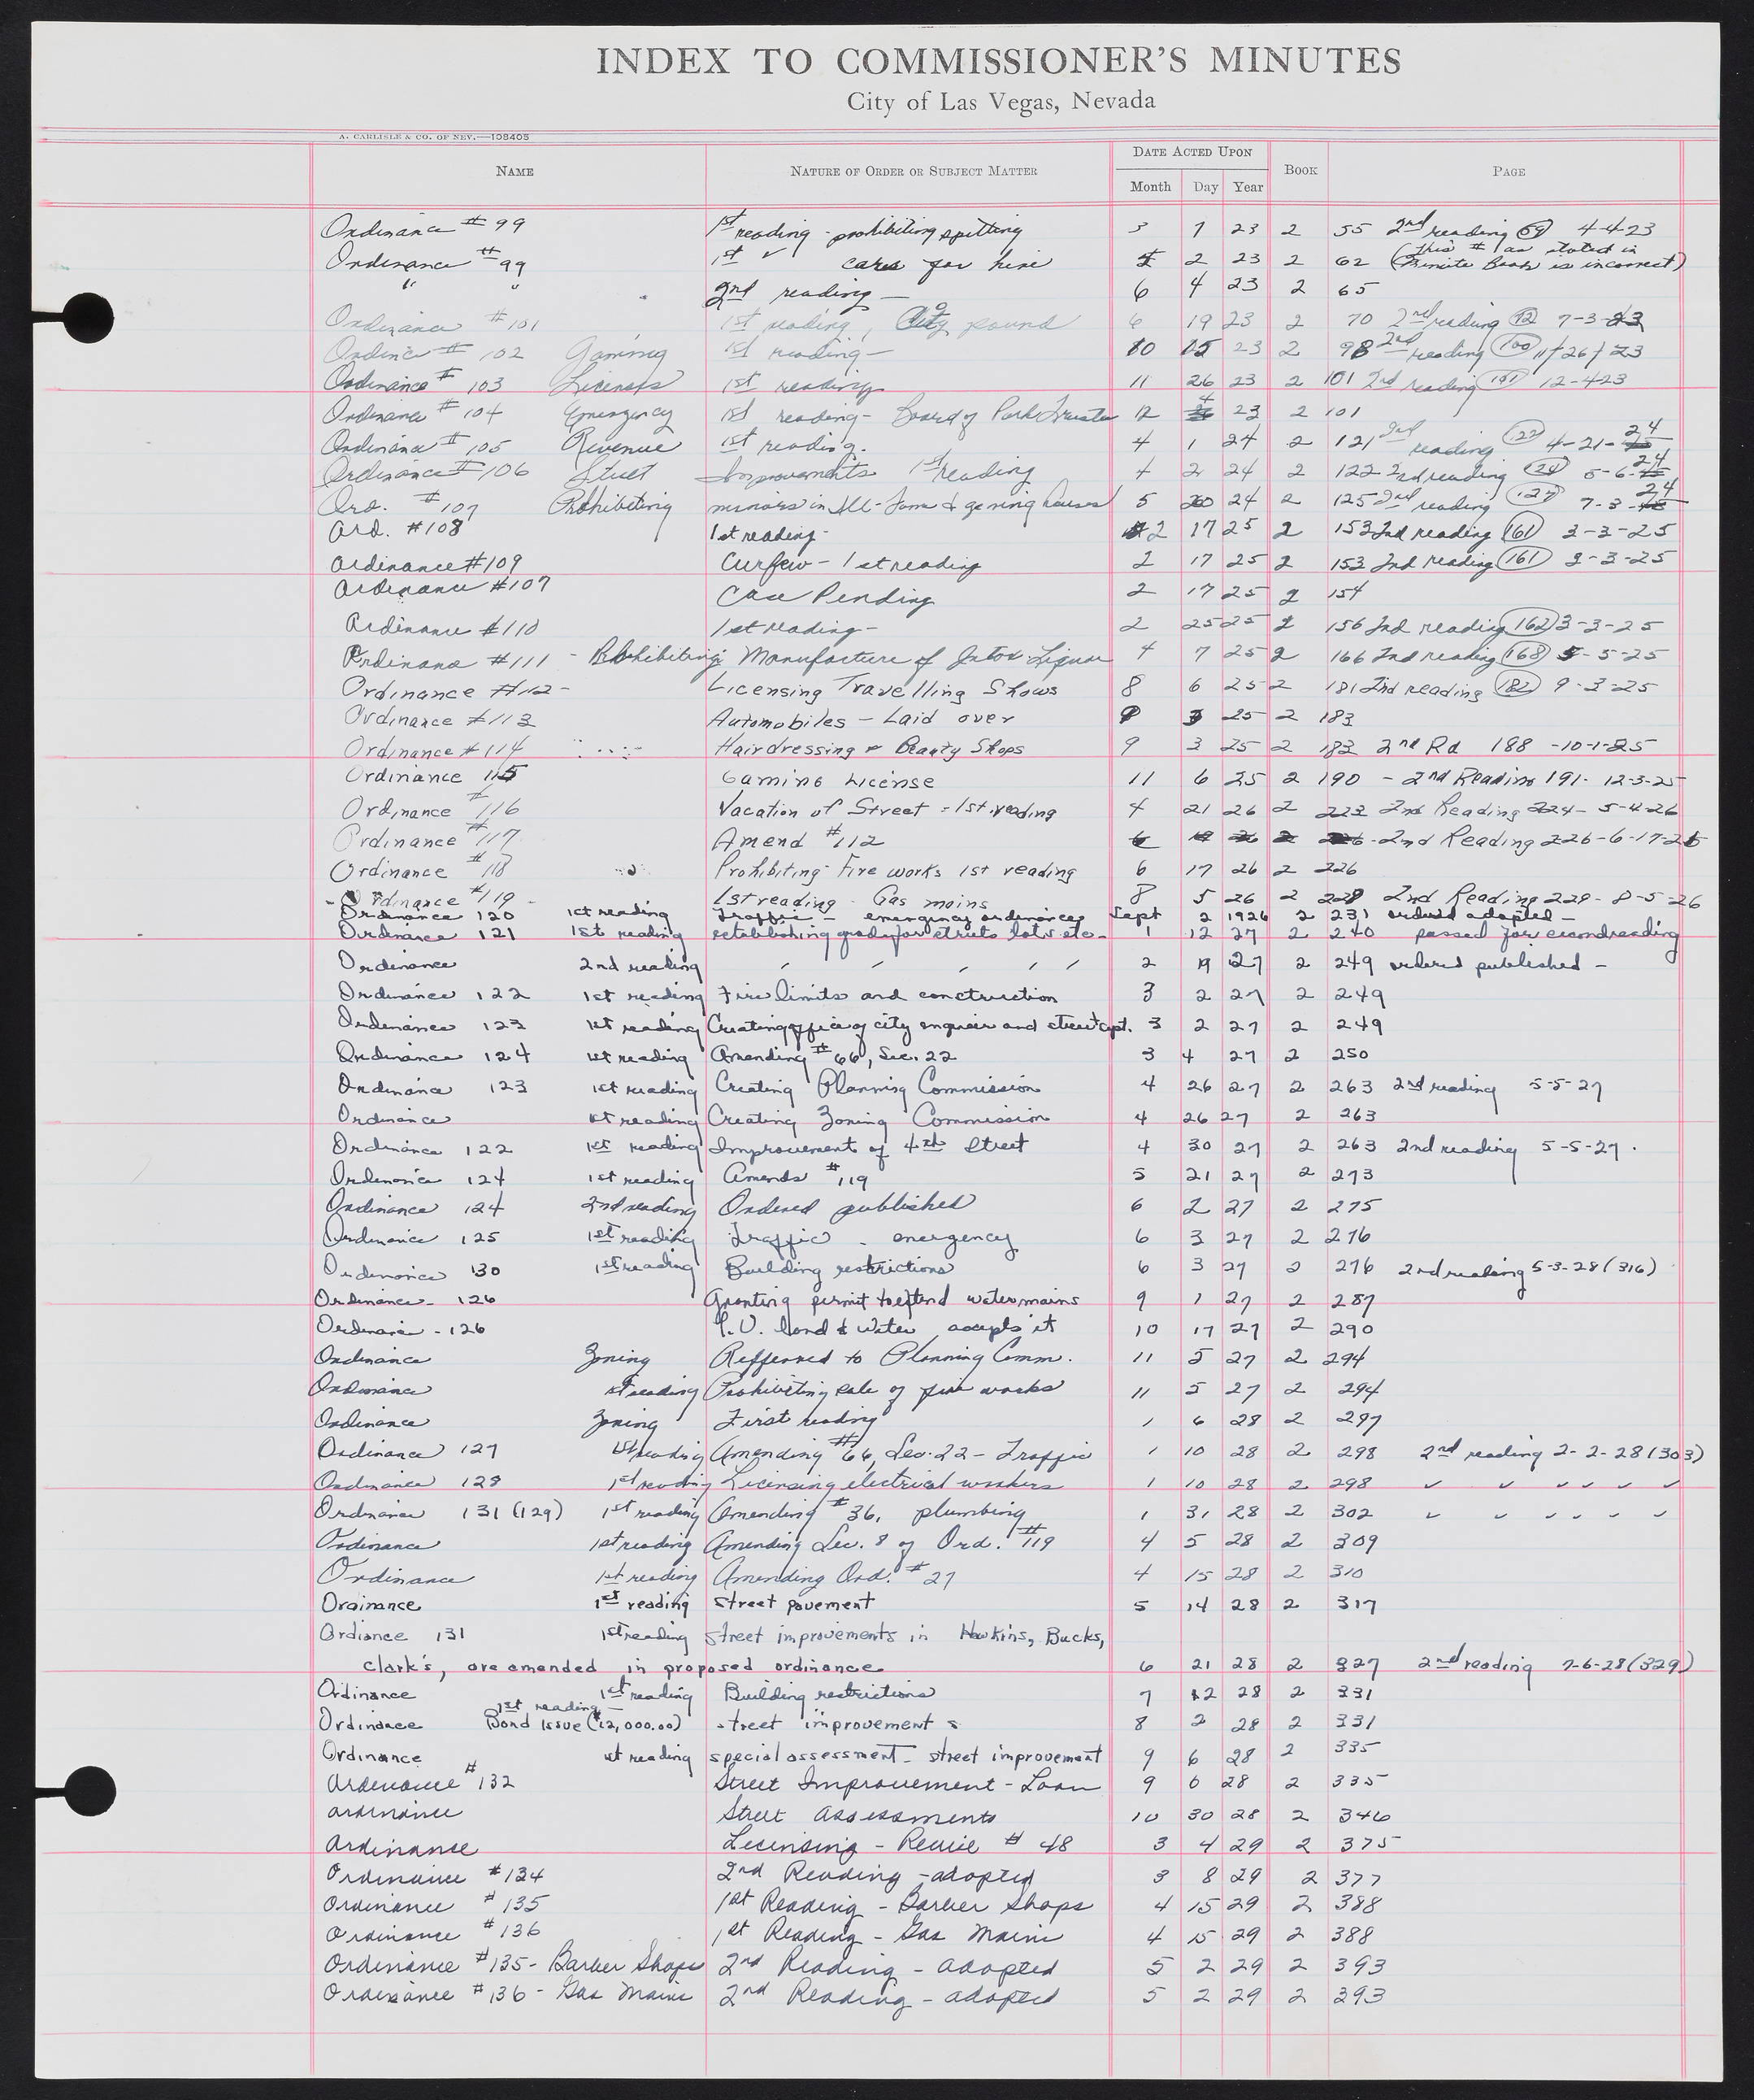 INDEX TO COMMISSIONER'S MINUTES
City of Las Vegas, Nevada
A. CARLISLE & CO. OF NEV.—108405
NAME NATURE OF ORDER OR SUBJECT MATTER DATE ACTED UPON BOOK PAGE
Month Day Year
Ordinance #99 1st reading - prohibiting spitting 3 7 23 2 55 2nd reading 59 4-4-23
Ordinance #99 1st " cars for hire 5 2 23 2 62 (This # as stated in Minute Book is incorrect)
" " 2nd reading — 6 4 23 2 65
Ordinance #101 1st reading, City pound 6 19 23 2 70 2nd reading 72 7-3-23
Ordinance # 102 Gaming 1st reading — 10 15 23 2 98 2nd reading 100 11/26/23
Ordinance # 103 Licenses 1st reading 11 26 23 2 101 2nd reading 101 12-4-23
Ordinance # 104 Emergency 1st reading - Board of Park Trustee 12 4 23 2 101
Ordinance # 105 Revenue 1st reading. 4 1 24 2 121 2nd reading 122 4-21-24
Ordinance # 106 Street Improvements 1st reading 4 2 24 2 122 2nd reading 124 5-6-24
Ord. # 107 Prohibiting minors in Ill-Fame & gaming houses 5 20 24 2 125 2nd reading 127 7-3-24
Ord. #108 1st reading- 2 17 25 2 153 2nd reading 161 3-3-25
Ordinance #109 Curfew - 1st reading 2 17 25 2 153 2nd reading 161 3-3-25
Ordinance #107 Case Pending 2 17 25 2 154
Ordinance #110 1st reading - 2 25 25 2 156 2nd reading 162 3-3-25
Ordinance #111 - Prohibiting Manufacture of Intox. Liquor 4 7 25 2 166 2nd reading 168 5-5-25
Ordinance #112 - Licensing Travelling Shows 8 6 25 2 181 2nd reading 182 9-3-25
Ordinance #113 Automobiles - Laid over 9 3 25 2 183
Ordinance #114 Hairdressing & Beauty Shops 9 3 25 2 183 2nd Rd 188 -10-1-25
Ordinance 115 Gaming License 11 6 25 2 190 - 2nd Reading 191- 12-3-25
Ordinance #116 Vacation of Street = 1st reading 4 21 26 2 223 2nd Reading 224- 5-4-26
Ordinance #117 Amend #112 226 - 2nd Reading 226-6-17-26
Ordinance #118 Prohibiting Fire works 1st reading 6 17 26 2 226
Ordinance #119 1st reading - Gas mains 8 5 26 2 228 2nd Reading 229- 8-5-26
Ordinance 120 1st reading Traffic — emergency ordinance Sept 2 1926 2 231 ordered adopted —
Ordinance 121 1st reading establishing grade for streets lots etc- 1 12 27 2 240 passed for second reading
Ordinance 2nd reading " " " " " 2 19 27 2 249 ordered published —
Ordinance 122 1st reading Fire limits and construction 3 2 27 2 249
Ordinance 123 1st reading Creating office of city engineer and street supt. 3 2 27 2 249
Ordinance 124 1st reading Amending #66, Sec. 22 3 4 27 2 250
Ordinance 123 1st reading Creating Planning Commission 4 26 27 2 263 2nd reading 5-5-27
Ordinance 1st reading Creating Zoning Commission 4 26 27 2 263
Ordinance 122 1st reading Improvement of 4th Street 4 30 27 2 263 2nd reading 5-5-27.
Ordinance 124 1st reading Amends #119 5 21 27 2 273
Ordinance 124 2nd reading Ordered published 6 2 27 2 275
Ordinance 125 1st reading Traffic - emergency 6 3 27 2 276
Ordinance 130 1st reading Building restrictions 6 3 27 2 276 2nd reading 5-3-28 (316)
Ordinance- 126 Granting permit to extend water mains 9 1 27 2 287
Ordinance - 126 L.V. Land & Water accepts it 10 17 27 2 290
Ordinance Zoning Refferred to Planning Comm. 11 5 27 2 294
Ordinance 1st reading Prohibiting sale of fire works 11 5 27 2 294
Ordinance Zoning First reading 1 6 28 2 297
Ordinance 127 1st reading Amending #66, Sec. 22 - Traffic 1 10 28 2 298 2nd reading 2-2-28 (303)
Ordinance 128 1st reading Licensing electrical workers 1 10 28 2 298 " " " " " "
Ordinance 131 (129) 1st reading Amending #36, plumbing 1 31 28 2 302 " " " " " "
Ordinance 1st reading Amending Sec. 8 of Ord. #119 4 5 28 2 309
Ordinance 1st reading Amending Ord. #27 4 15 28 2 310
Ordinance 1st reading Street pavement 5 14 28 2 317
Ordiance 131 1st reading Street improvements in Hawkins, Bucks,
Clark's, are amended in proposed ordinance 6 21 28 2 327 2nd reading 7-6-28 (329)
Ordinance 1st reading Building restrictions 7 12 28 2 331
Ordinance 1st reading - Bond Issue ($12,000.00) street improvements 8 2 28 2 331
Ordinance 1st reading special assessment - street improvement 9 6 28 2 335
Ordinance #132 Street Improvement - Loan 9 6 28 2 335
Ordinance Street Assessments 10 30 28 2 346
Ordinance Licensing - Revise # 48 3 4 29 2 375
Ordinance #134 2nd Reading - adopted 3 8 29 2 377
Ordinance #135 1st Reading - Barber Shops 4 15 29 2 388
Ordinance #136 1st Reading - Gas Mains 4 15 29 2 388
Ordinance #135 - Barber Shops 2nd Reading - adopted 5 2 29 2 393
Ordinance #136 - Gas Mains 2nd Reading - adopted 5 2 29 2 393